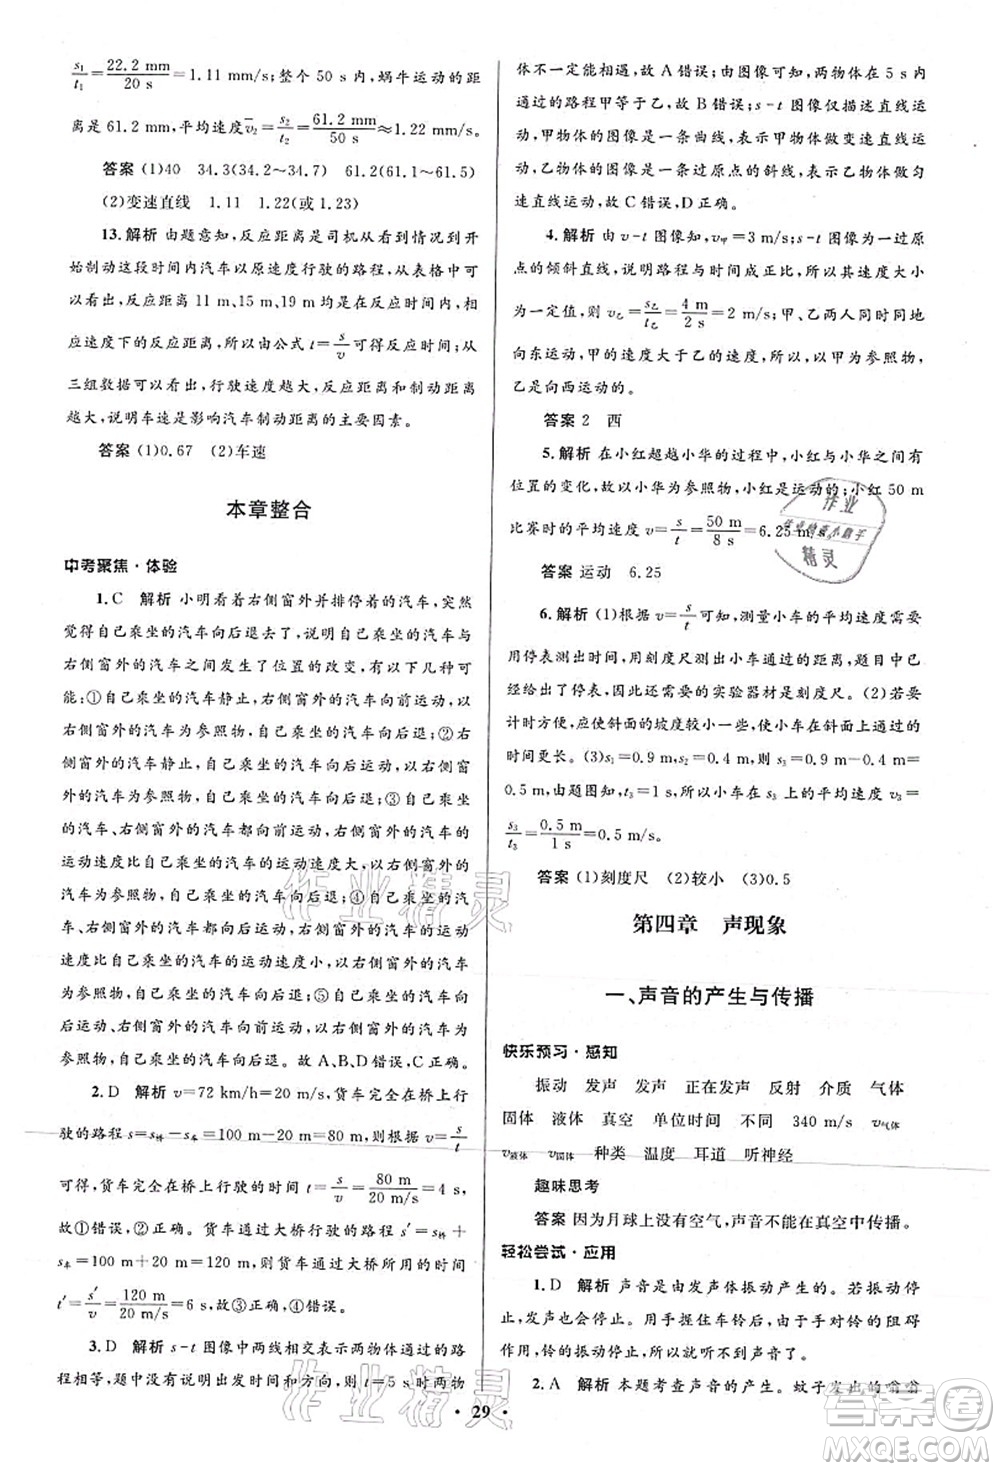 s₁/t₁=22.2 mm/20 s=1.11 mm/s;整个 50 s 内,蜗牛运动的距
离是 61.2 mm,平均速度v̄₂=s₂/t₂=61.2 mm/50 s≈1.22 mm/s。
答案 (1)40 34.3(34.2～34.7) 61.2(61.1～61.5)
(2)变速直线 1.11 1.22(或 1.23)
13. 解析 由题意知,反应距离是司机从看到情况到开
始制动这段时间内汽车以原速度行驶的路程,表格中可
以看出,反应距离 11 m、15 m、19 m 均是在反应时间内,相
应速度下的反应距离,所以由公式 t=s/v可得反应时间;从
三组数据可以看出,行驶速度越大,反应距离和制动距离
越大,说明车速是影响汽车制动距离的主要因素。
答案 (1)0.67 (2)车速
本章整合
中考聚焦·体验
1. C 解析 小明看着右侧窗外并排停着的汽车,突然
觉得自己乘坐的汽车向后退去,说明自己乘坐的汽车与
右侧窗外的汽车之间发生了位置的改变,有以下几种可
能:①自己乘坐的汽车静止,右侧窗外的汽车向前运动,以
右侧窗外的汽车为参照物,自己乘坐的汽车后退;②右侧
窗外的汽车静止,自己乘坐的汽车向后运动,以右侧窗外
的汽车为参照物,自己乘坐的汽车后退;③自己乘坐的汽
车和右侧窗外的汽车都向前运动,但是右侧窗外的汽车的
运动速度比自己乘坐的汽车的运动速度大,以右侧窗外的
汽车为参照物,自己乘坐的汽车后退;④自己乘坐的汽车和
右侧窗外的汽车都向后运动,但是右侧窗外的汽车的运动
速度比自己乘坐的汽车的运动速度小,以右侧窗外的汽车
为参照物,自己乘坐的汽车后退;⑤自己乘坐的汽车向后
运动,右侧窗外的汽车向前运动,以右侧窗外的汽车为参
照物,自己乘坐的汽车后退。故 A、B、D 错误,C 正确。
2. D 解析 v=72 km/h=20 m/s,货车在桥上行
驶的路程 s=s桥－s车=100 m－20 m=80 m,根据 v=s/t
可得,货车完全在桥上行驶的时间 t=s/v=80 m/20 m/s=4 s,
故①错误,②正确。货车通过大桥行驶的路程 s′=s桥+
s车=100 m+20 m=120 m,货车通过大桥所用的时间
t′=s′/v=120 m/20 m/s=6 s,故③正确,④错误。
3. D 解析 s-t 图像中两线相交表示两物体通过的路
程相等,题中没有说明出发时间和方向,则 t=5 s 时两物
体不一定能相遇,故 A 错误;由图像可知,两物体在 5 s 内
通过的路程甲等于乙,故 B 错误;s-t 图像仅描述直线运
动,甲物体的图像是一条曲线,表示甲物体做变速直线运
动,乙物体的图像是一条过原点的斜线,表示乙物体做匀
速直线运动,故 C 错误,D 正确。
4. 解析 由 v-t 图像知,v甲=3 m/s;s-t 图像是一条过原
点的倾斜直线,说明路程与时间成正比,所以其速度大小为
一定值,则 v乙=s乙/t乙=4 m/2 s=2 m/s;甲、乙两人同时同地
向东运动,甲的速度大于乙的速度,所以,以甲为参照物,
乙是向西运动的。
答案 2 西
5. 解析 在小红超越小华的过程中,小红与小华之间有
位置的变化,故以小华为参照物,小红是运动的;小红 50 m
比赛时的平均速度 v=s/t=50 m/8 s=6.25 m/s。
答案 运动 6.25
6. 解析 (1)根据 v=s/t可知,测量小车的平均速度需要
用停表测出时间,用刻度尺测出小车通过的距离,题目中已
经给出了停表,故还需要的实验器材是刻度尺。(2)若要
计时方便,应使斜面的坡度较小一些,使小车在斜面上通过
的时间更长。(3)s₁=0.9 m,s₂=0.4 m,所以 s₃=0.9 m－0.4 m=
0.5 m,由题图知,t₃=1 s,所以小车在 s₃ 上的平均速度 v₃=
s₃/t₃=0.5 m/1 s=0.5 m/s。
答案 (1)刻度尺 (2)较小 (3)0.5
第四章 声现象
一、声音的产生与传播
快乐预习·感知
振动 发声 发声 正在发声 反射 介质 气体
固体 液体 真空 单位时间 不同 340 m/s v气体
v液体 v固体 种类 温度 耳道 听神经
趣味思考
答案 因为月球上没有空气,声音不能在真空中传播。
轻松尝试·应用
1. D 解析 声音是由发声体振动产生的。若振动停
止,发声也会停止。用手按住车铃后,由于手对铃的阻碍
作用,铃的振动停止,所以就听不到声音了。
2. A 解析 本题考查声音的产生。蚊子发出的嗡嗡
· 29 ·
作业精灵
作业精灵
作业
精灵
答案圈
MXQE.COM